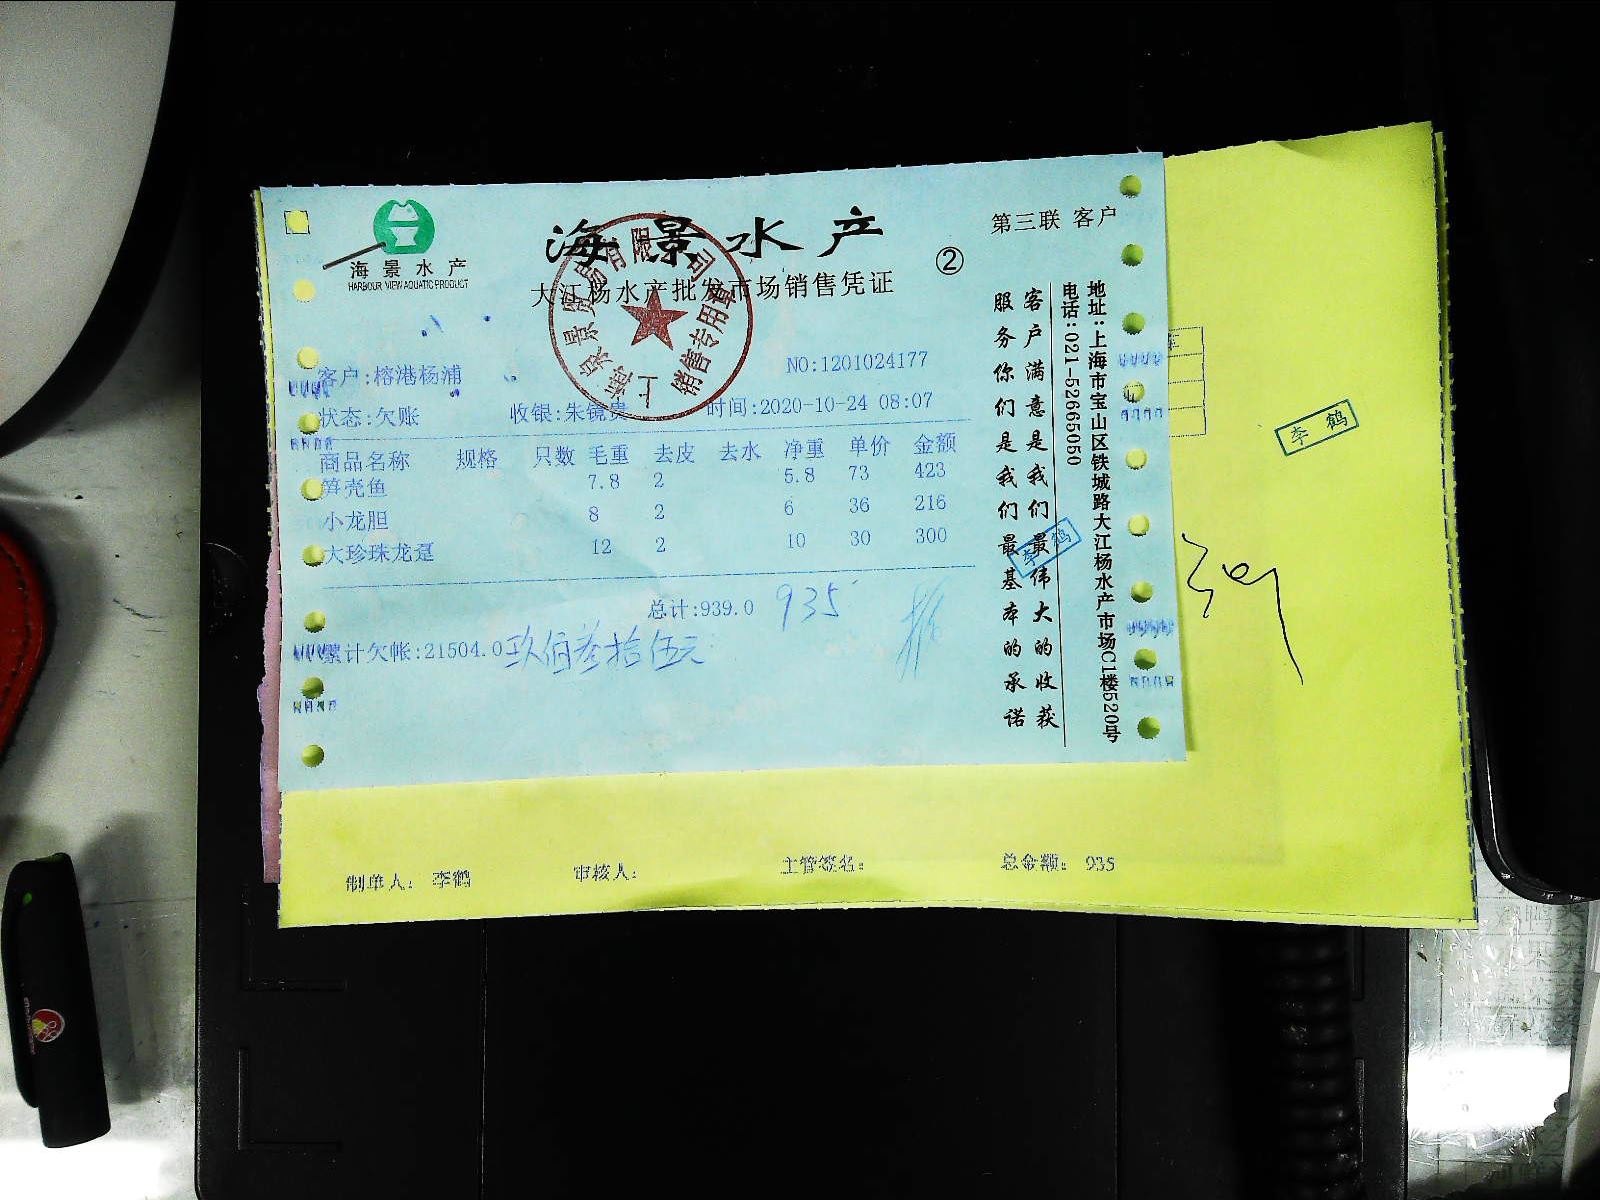 海景水产
HARBOUR VIEW AQUATIC PRODUCT
海景水产
大江杨水产批发市场销售凭证
②
第三联 客户
销售专用章
客户:榕港杨浦
NO:1201024177
状态:欠账 收银:朱镜贵 时间:2020-10-24 08:07
商品名称 规格 只数 毛重 去皮 去水 净重 单价 金额
笋壳鱼 7.8 2 5.8 73 423
小龙胆 8 2 6 36 216
大珍珠龙趸 12 2 10 30 300
总计:939.0 935
累计欠帐:21504.0 玖佰叁拾伍元
客户满意是我们最伟大的收获
服务你们是我们最基本的承诺
地址:上海市宝山区铁城路大江杨水产市场C1楼520号
电话:021-52665050
李鹤
李鹤
制单人: 李鹤 审核人: 主管签名: 总金额: 935